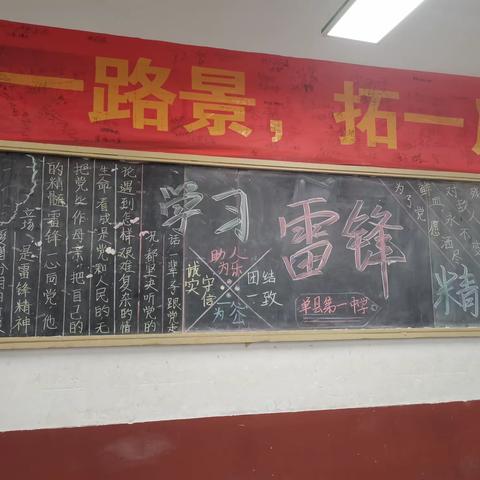 一路景，拓一
学习
雷锋
助人
为乐
诚实守信
团结
一致
为公
单县第一中学
精
为了党
鲜血愿洒尽
对敌永
话一辈子跟党走
况都坚决听党的
论遇到怎样艰难复杂的情
生命看成是党和人民的无
把党比作母亲把自己的
的精髓雷锋一心同党他
立场是雷锋精神